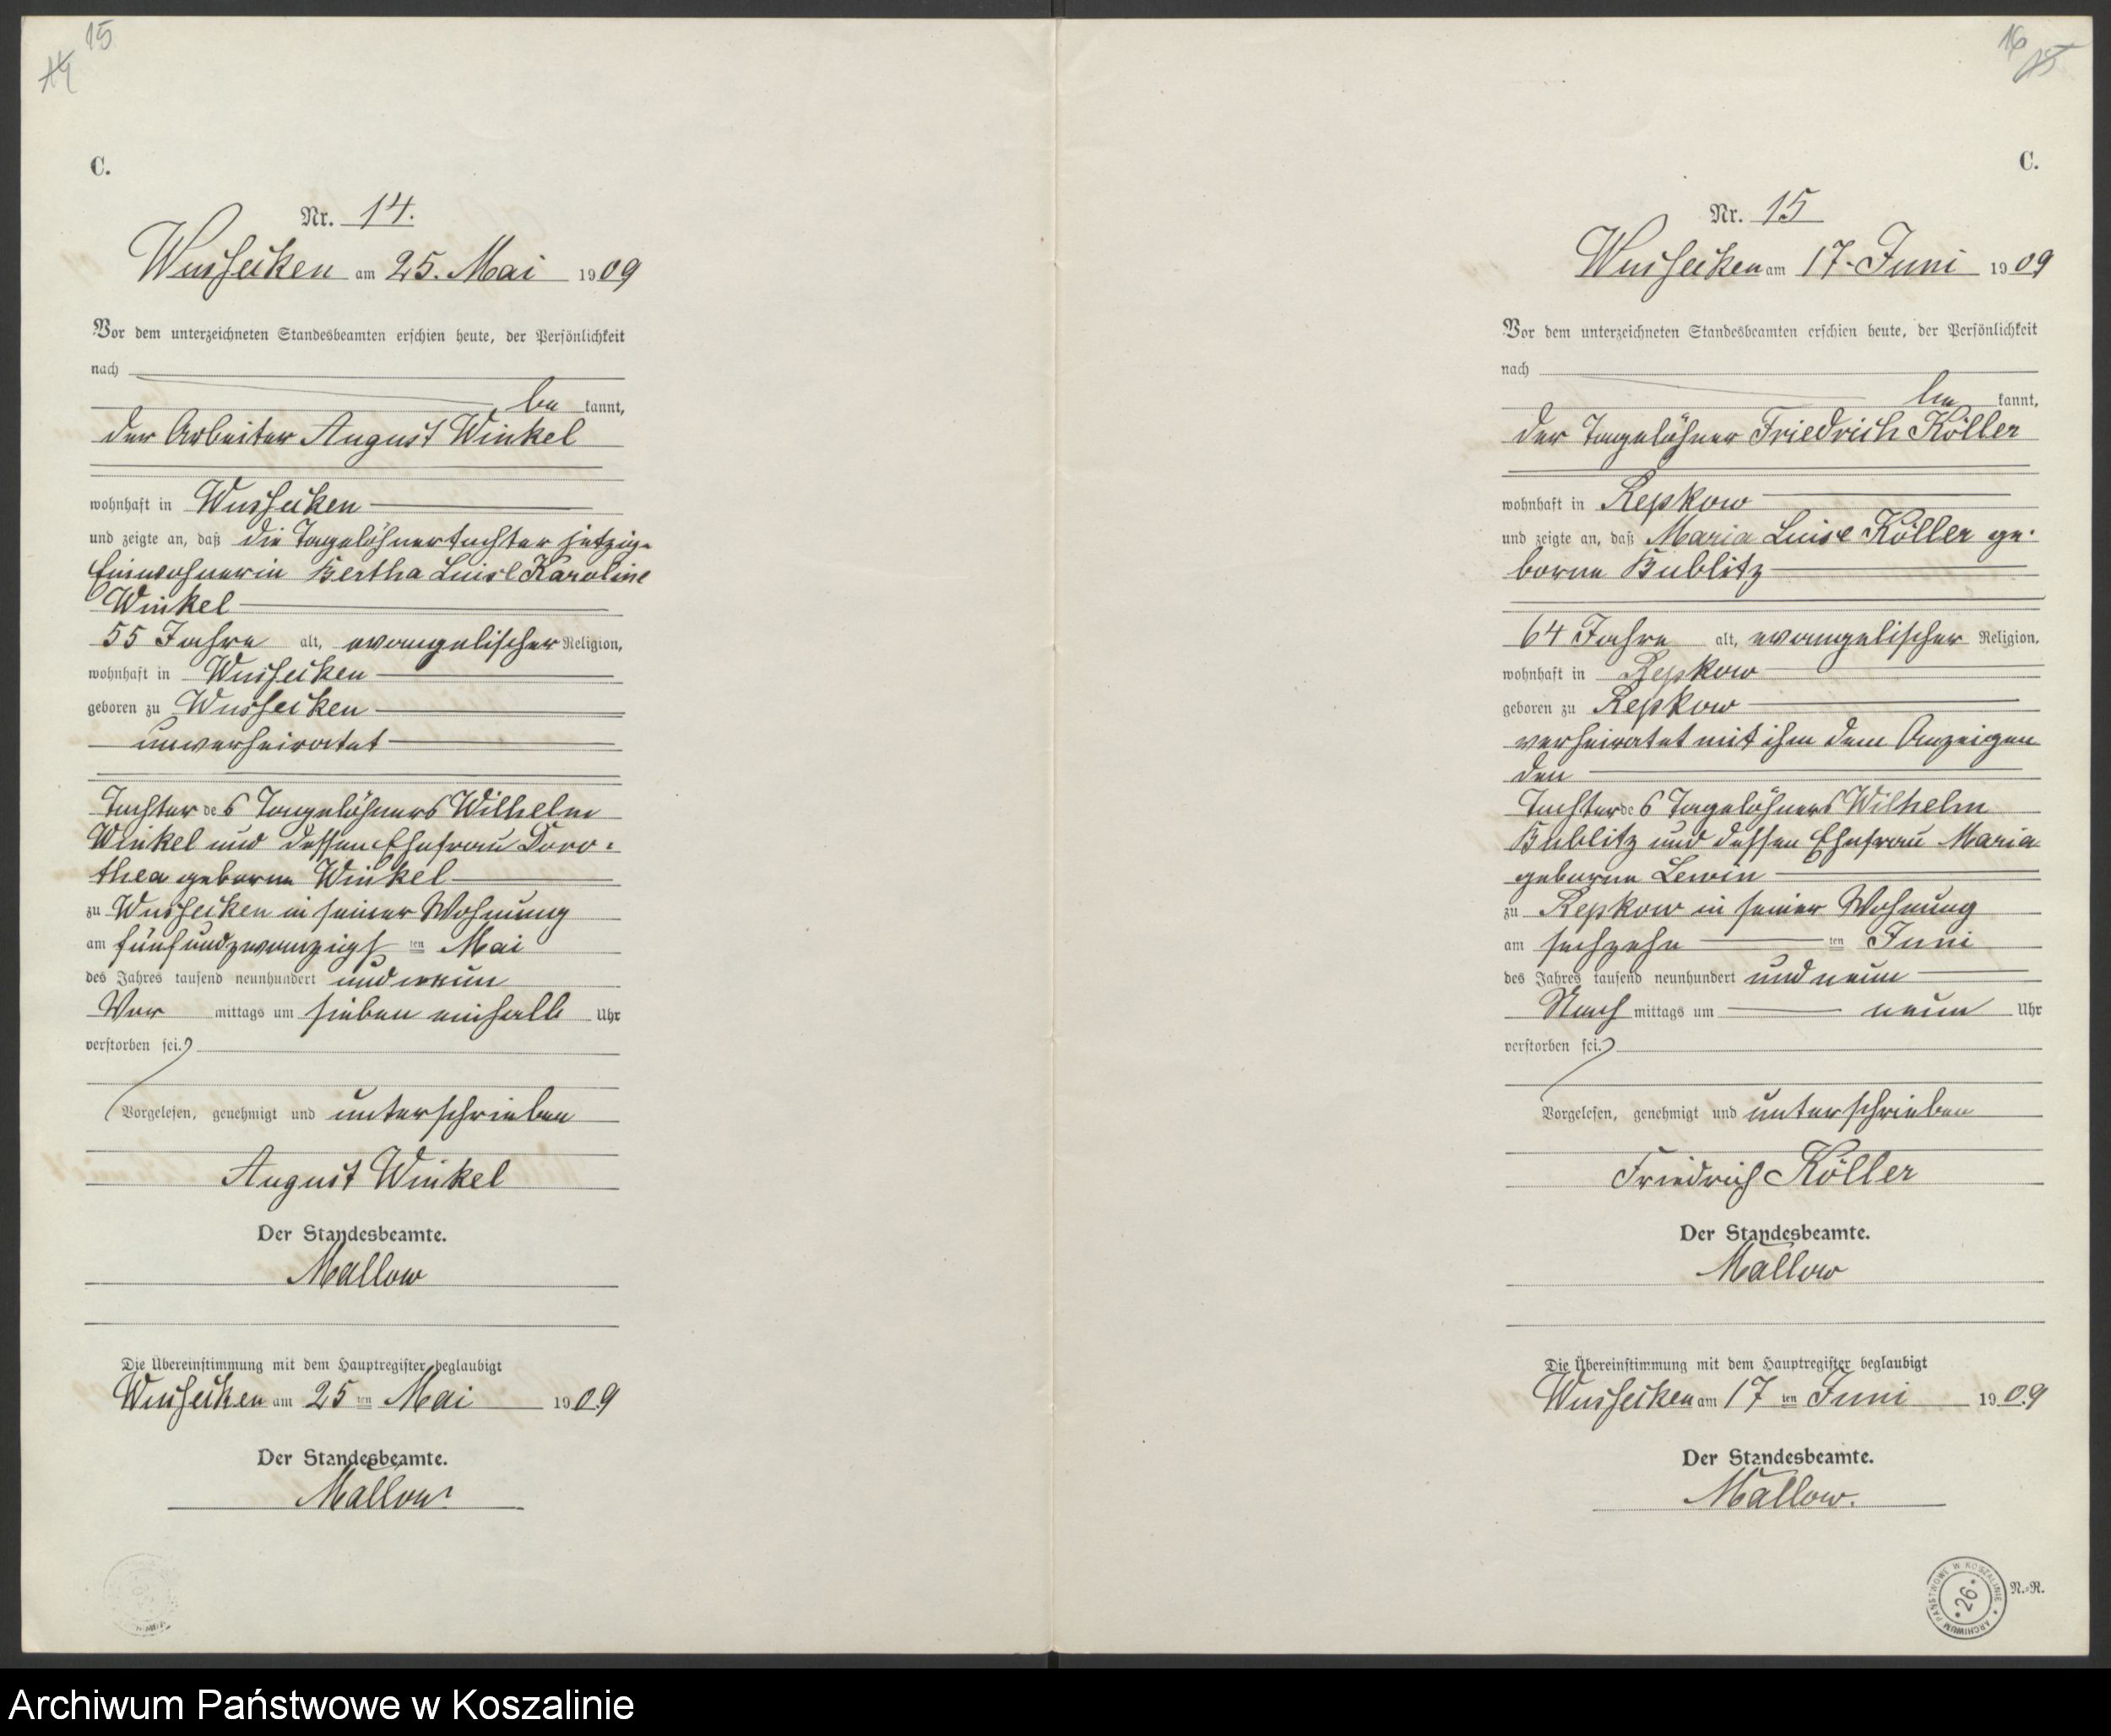 15
14
C.
Nr. 14.
Wusseken am 25. Mai 1909
Vor dem unterzeichneten Standesbeamten erschien heute, der Persönlichkeit
nach
be kannt,
der Arbeiter August Winkel
wohnhaft in Wusseken
und zeigte an, daß die Tagelöhnertochter jetzige
Einwohnerin Bertha Luise Karoline
Winkel
55 Jahre alt, evangelischer Religion,
wohnhaft in Wusseken
geboren zu Wusseken
unverheiratet
Tochter des Tagelöhners Wilhelm
Winkel und dessen Ehefrau Doro-
thea geborne Winkel
zu Wusseken in seiner Wohnung
am fünfundzwanzigsten Mai
des Jahres tausend neunhundert und neun
Vor mittags um sieben einhalb Uhr
verstorben sei.
Vorgelesen, genehmigt und unterschrieben
August Winkel
Der Standesbeamte.
Mallow
Die Übereinstimmung mit dem Hauptregister beglaubigt
Wusseken am 25 ten Mai 1909
Der Standesbeamte.
Mallow.
16
15
C.
Nr. 15
Wusseken am 17. Juni 1909
Vor dem unterzeichneten Standesbeamten erschien heute, der Persönlichkeit
nach
be kannt,
der Tagelöhner Friedrich Köller
wohnhaft in Repkow
und zeigte an, daß Maria Luise Köller ge-
borne Bublitz
64 Jahre alt, evangelischer Religion,
wohnhaft in Repkow
geboren zu Repkow
verheiratet mit ihm dem Anzeigen
den
Tochter des Tagelöhners Wilhelm
Bublitz und dessen Ehefrau Maria
geborne Lewin
zu Repkow in seiner Wohnung
am sechzehn ten Juni
des Jahres tausend neunhundert und neun
Nach mittags um neun Uhr
verstorben sei.
Vorgelesen, genehmigt und unterschrieben
Friedrich Köller
Der Standesbeamte.
Mallow
Die Übereinstimmung mit dem Hauptregister beglaubigt
Wusseken am 17 ten Juni 1909
Der Standesbeamte.
Mallow.
ARCHIWUM PAŃSTWOWE W KOSZALINIE
*26*
N.-R.
Archiwum Państwowe w Koszalinie